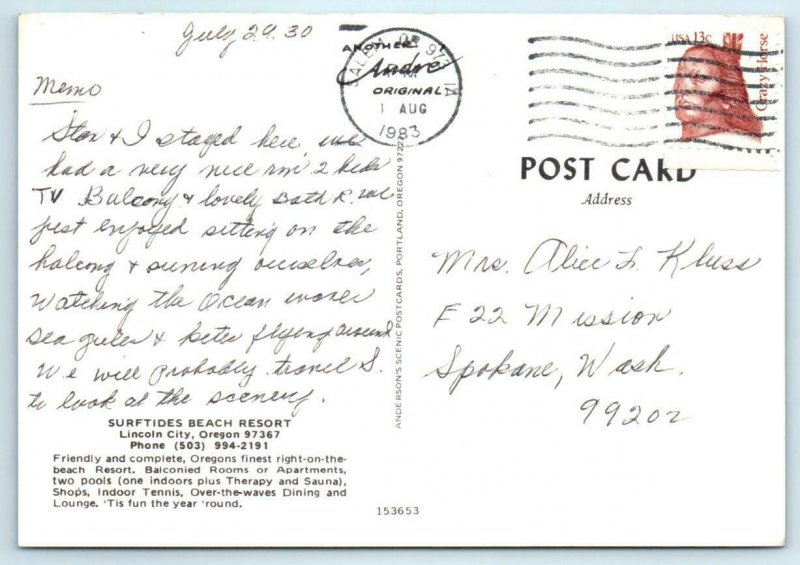 July 29.30
Memo
Stan & I stayed here, we
had a very nice rm, 2 beds
TV Balcony & lovely Bath R. we
just enjoyed sitting on the
balcony & suning ourselves,
watching the Ocean waves
sea gules & kites flying around
We will probably travel S.
to look at the scenery.
SURFTIDES BEACH RESORT
Lincoln City, Oregon 97367
Phone (503) 994-2191
Friendly and complete, Oregons finest right-on-the-
beach Resort. Balconied Rooms or Apartments,
two pools (one indoors plus Therapy and Sauna),
Shops, Indoor Tennis, Over-the-waves Dining and
Lounge. 'Tis fun the year 'round.
ANOTHER
André
ORIGINAL
SALEM, OR
1 AUG
1983
ANDERSON'S SCENIC POSTCARDS, PORTLAND, OREGON
USA 13c
Crazy Horse
POST CARD
Address
Mrs. Alice F. Kluss
E 22 Mission
Spokane, Wash.
99202
153653